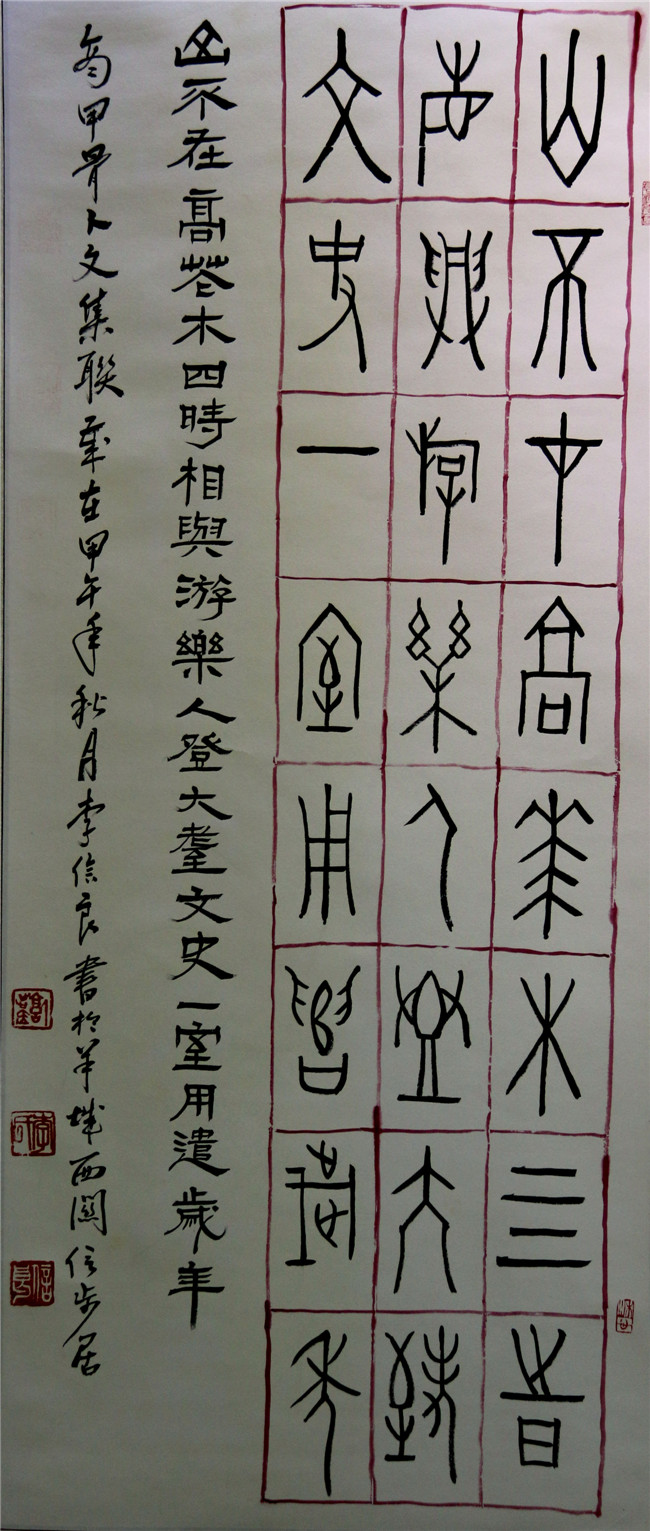 山不在高花木四時
相與游樂人登大耋
文史一室用遣歲年
山不在高花木四時相與游樂人登大耋文史一室用遣歲年
商甲骨卜文集聯 歲在甲午年秋月李信良書於羊城西關信步居